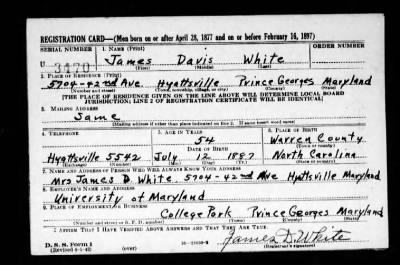 REGISTRATION CARD—(Men born on or after April 28, 1877 and on or before February 16, 1897)
SERIAL NUMBER 1. NAME (Print) ORDER NUMBER
U 3470 James Davis White
(First) (Middle) (Last)
2. PLACE OF RESIDENCE (Print)
5704-42nd Ave Hyattsville Prince Georges Maryland
(Number and street) (Town, township, village, or city) (County) (State)
[THE PLACE OF RESIDENCE GIVEN ON THE LINE ABOVE WILL DETERMINE LOCAL BOARD
JURISDICTION; LINE 2 OF REGISTRATION CERTIFICATE WILL BE IDENTICAL]
3. MAILING ADDRESS
Same
[Mailing address if other than place indicated on line 2. If same insert word same]
4. TELEPHONE 5. AGE IN YEARS 6. PLACE OF BIRTH
54 Warren County
DATE OF BIRTH (Town or county)
Hyattsville 5542 July 12 1887 North Carolina
(Exchange) (Number) (Mo.) (Day) (Yr.) (State or country)
7. NAME AND ADDRESS OF PERSON WHO WILL ALWAYS KNOW YOUR ADDRESS
Mrs James D. White. 5704-42nd Ave Hyattsville Maryland
8. EMPLOYER'S NAME AND ADDRESS
University of Maryland
9. PLACE OF EMPLOYMENT OR BUSINESS
College Park Prince Georges Maryland
(Number and street or R. F. D. number) (Town) (County) (State)
I AFFIRM THAT I HAVE VERIFIED ABOVE ANSWERS AND THAT THEY ARE TRUE.
James D. White
D. S. S. Form 1
(Revised 4-1-42) (over) (Registrant's signature)